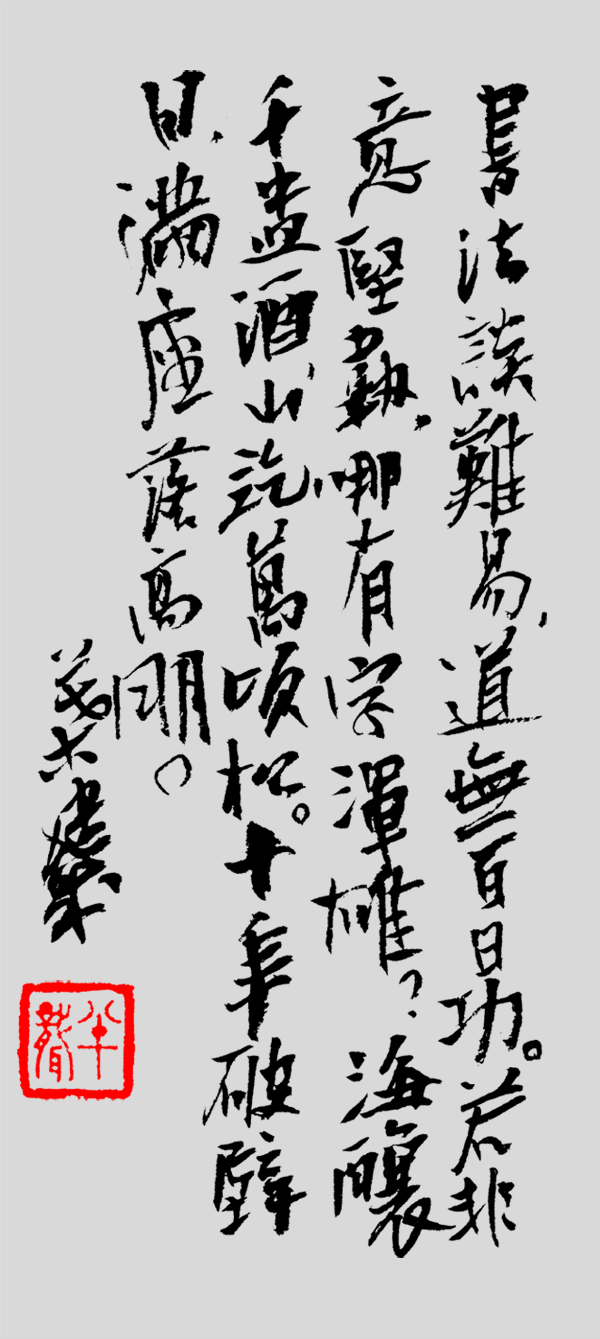 書法談難易,道無百日功。若非
意堅勤,哪有字渾雄?海釀
千盅酒,山萬頃松。十年破壁
日,滿座落高朋。
半聾